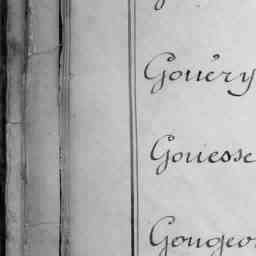 Gouéry
Gouesse
Gougeo